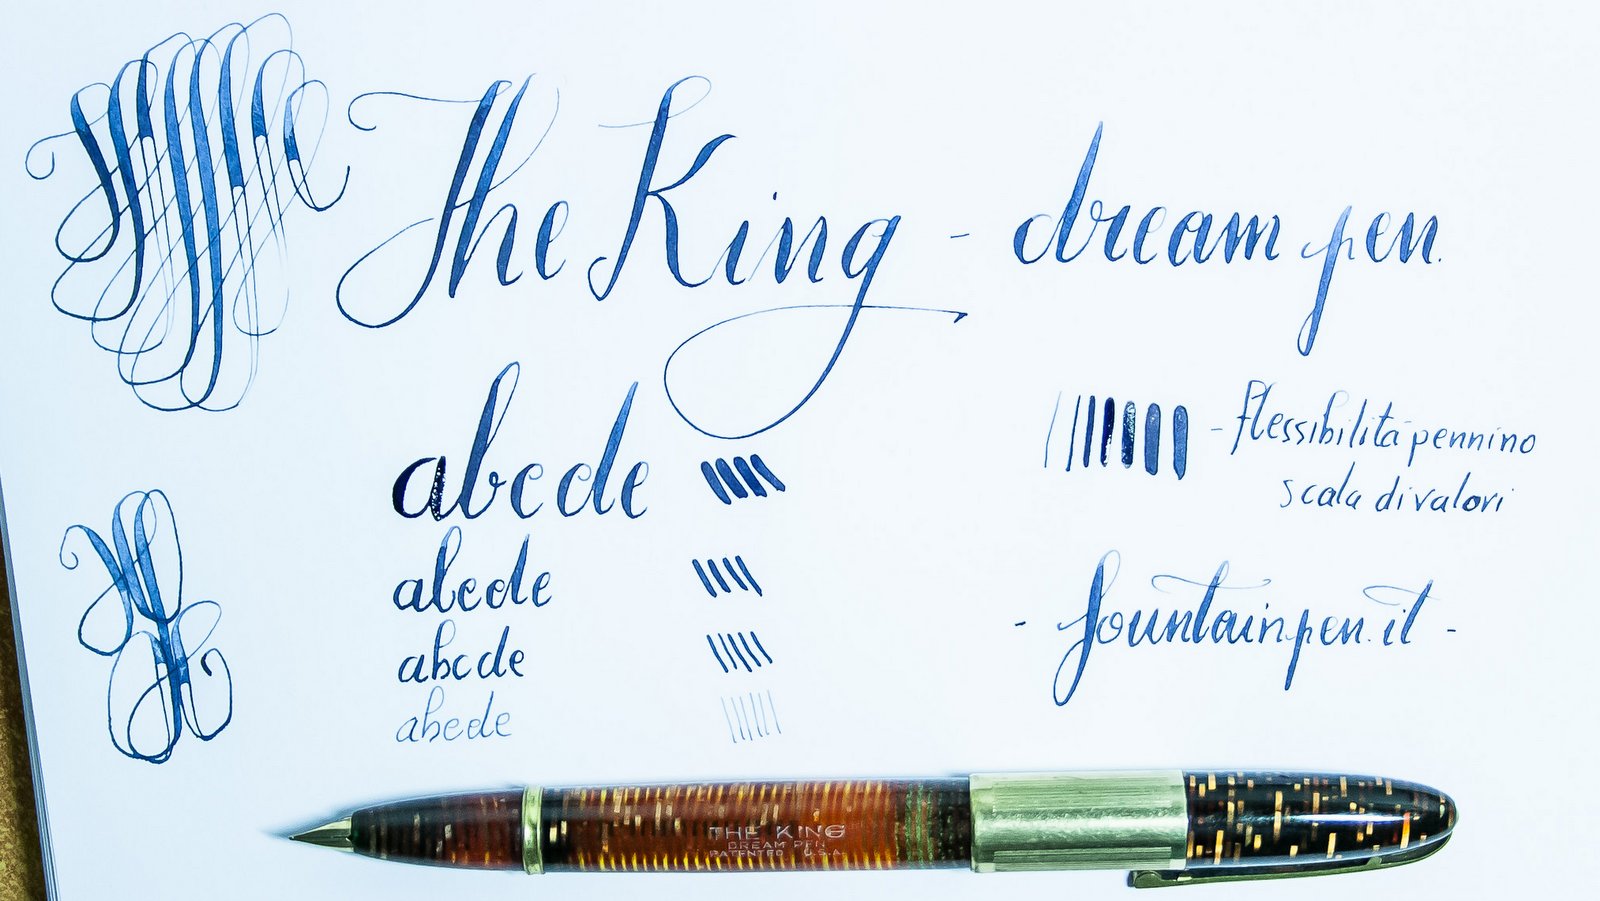 The King - dream pen.
abcde
- flessibilità pennino
scala di valori
abcde
abcde
abcde
- fountainpen.it -
THE KING
DREAM PEN
PATENTED U.S.A.